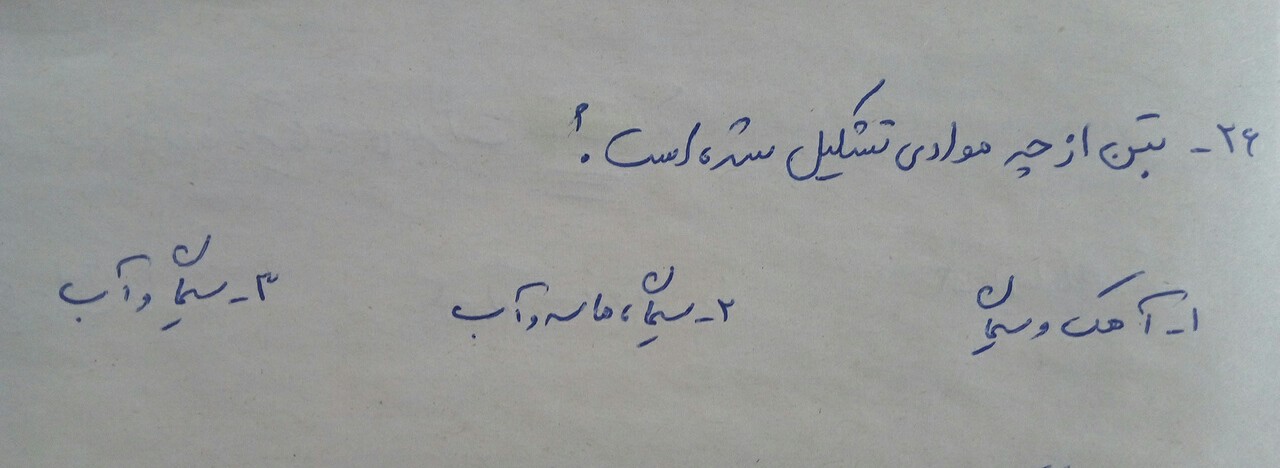 ۲۶- بتن از چه موادی تشکیل شده است؟
۱- آهک و سیمان ۲- سیمان، ماسه و آب ۳- سیمان و آب